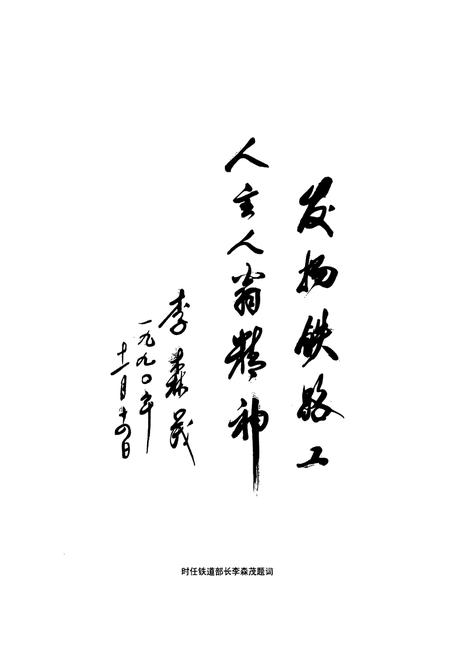 发扬铁路工
人主人翁精神
李森茂
一九九〇年
十一月十四日
时任铁道部长李森茂题词